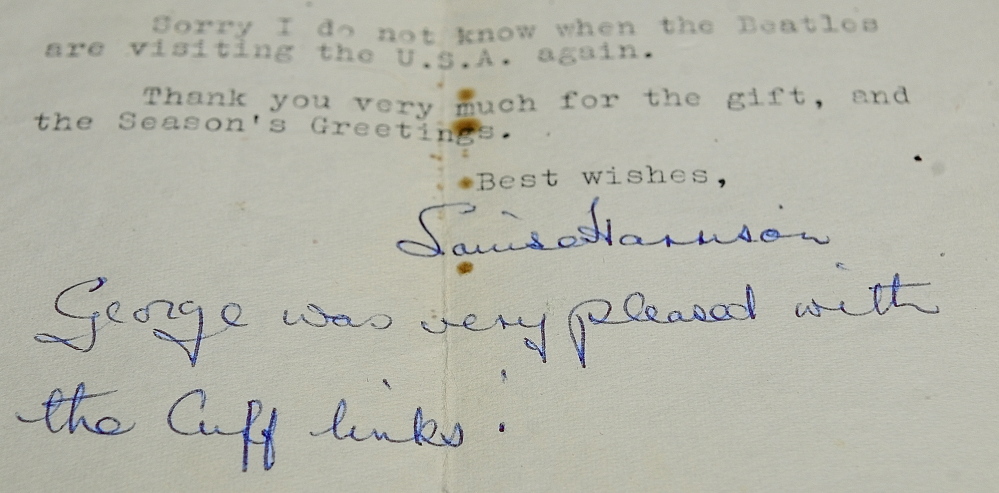 Sorry I do not know when the Beatles
are visiting the U.S.A. again.
Thank you very much for the gift, and
the Season's Greetings.
Best wishes,
Louise Harrison
George was very pleased with
the Cuff links.